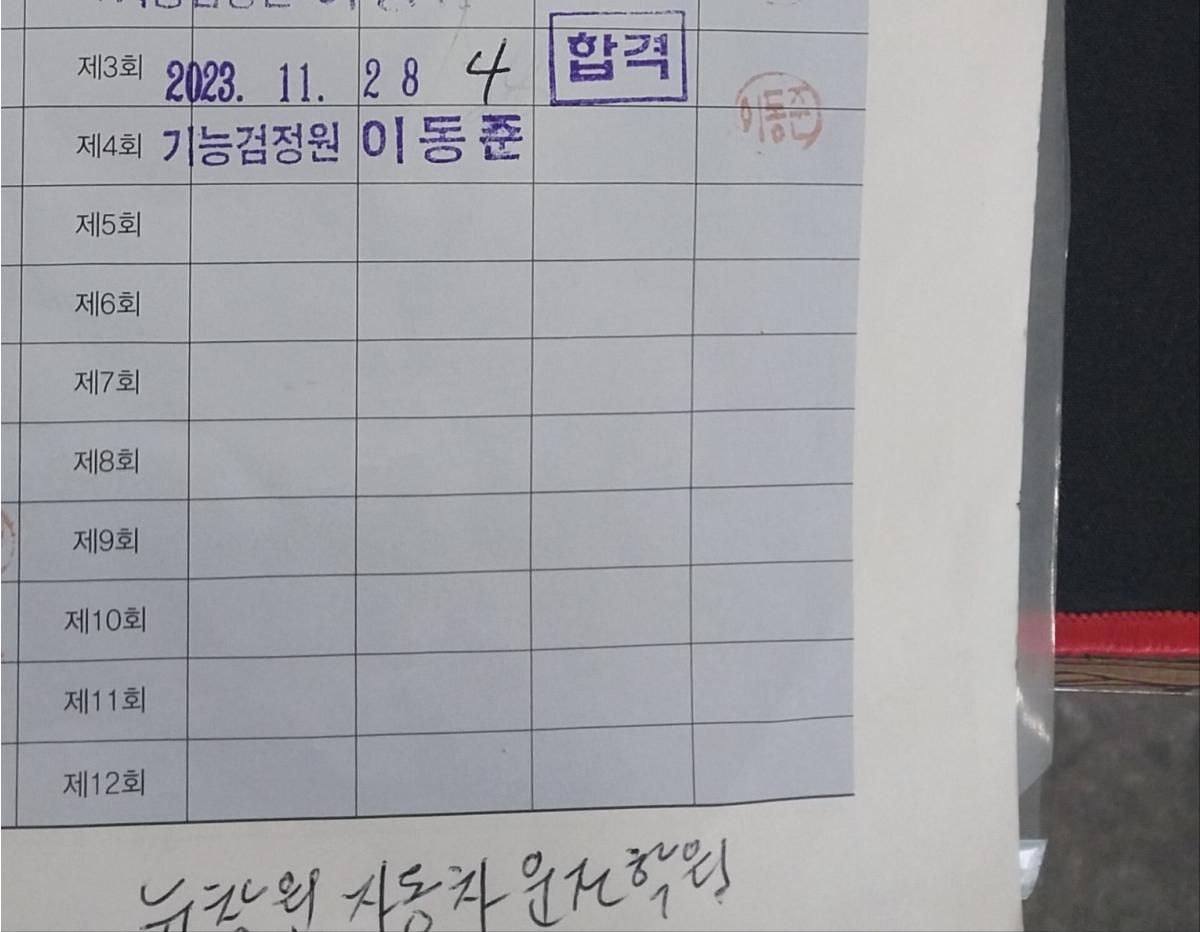 제3회 2023. 11. 28 4 합격
이동준
제4회 기능검정원 이동준
제5회
제6회
제7회
제8회
제9회
제10회
제11회
제12회
뉴창원 자동차운전학원